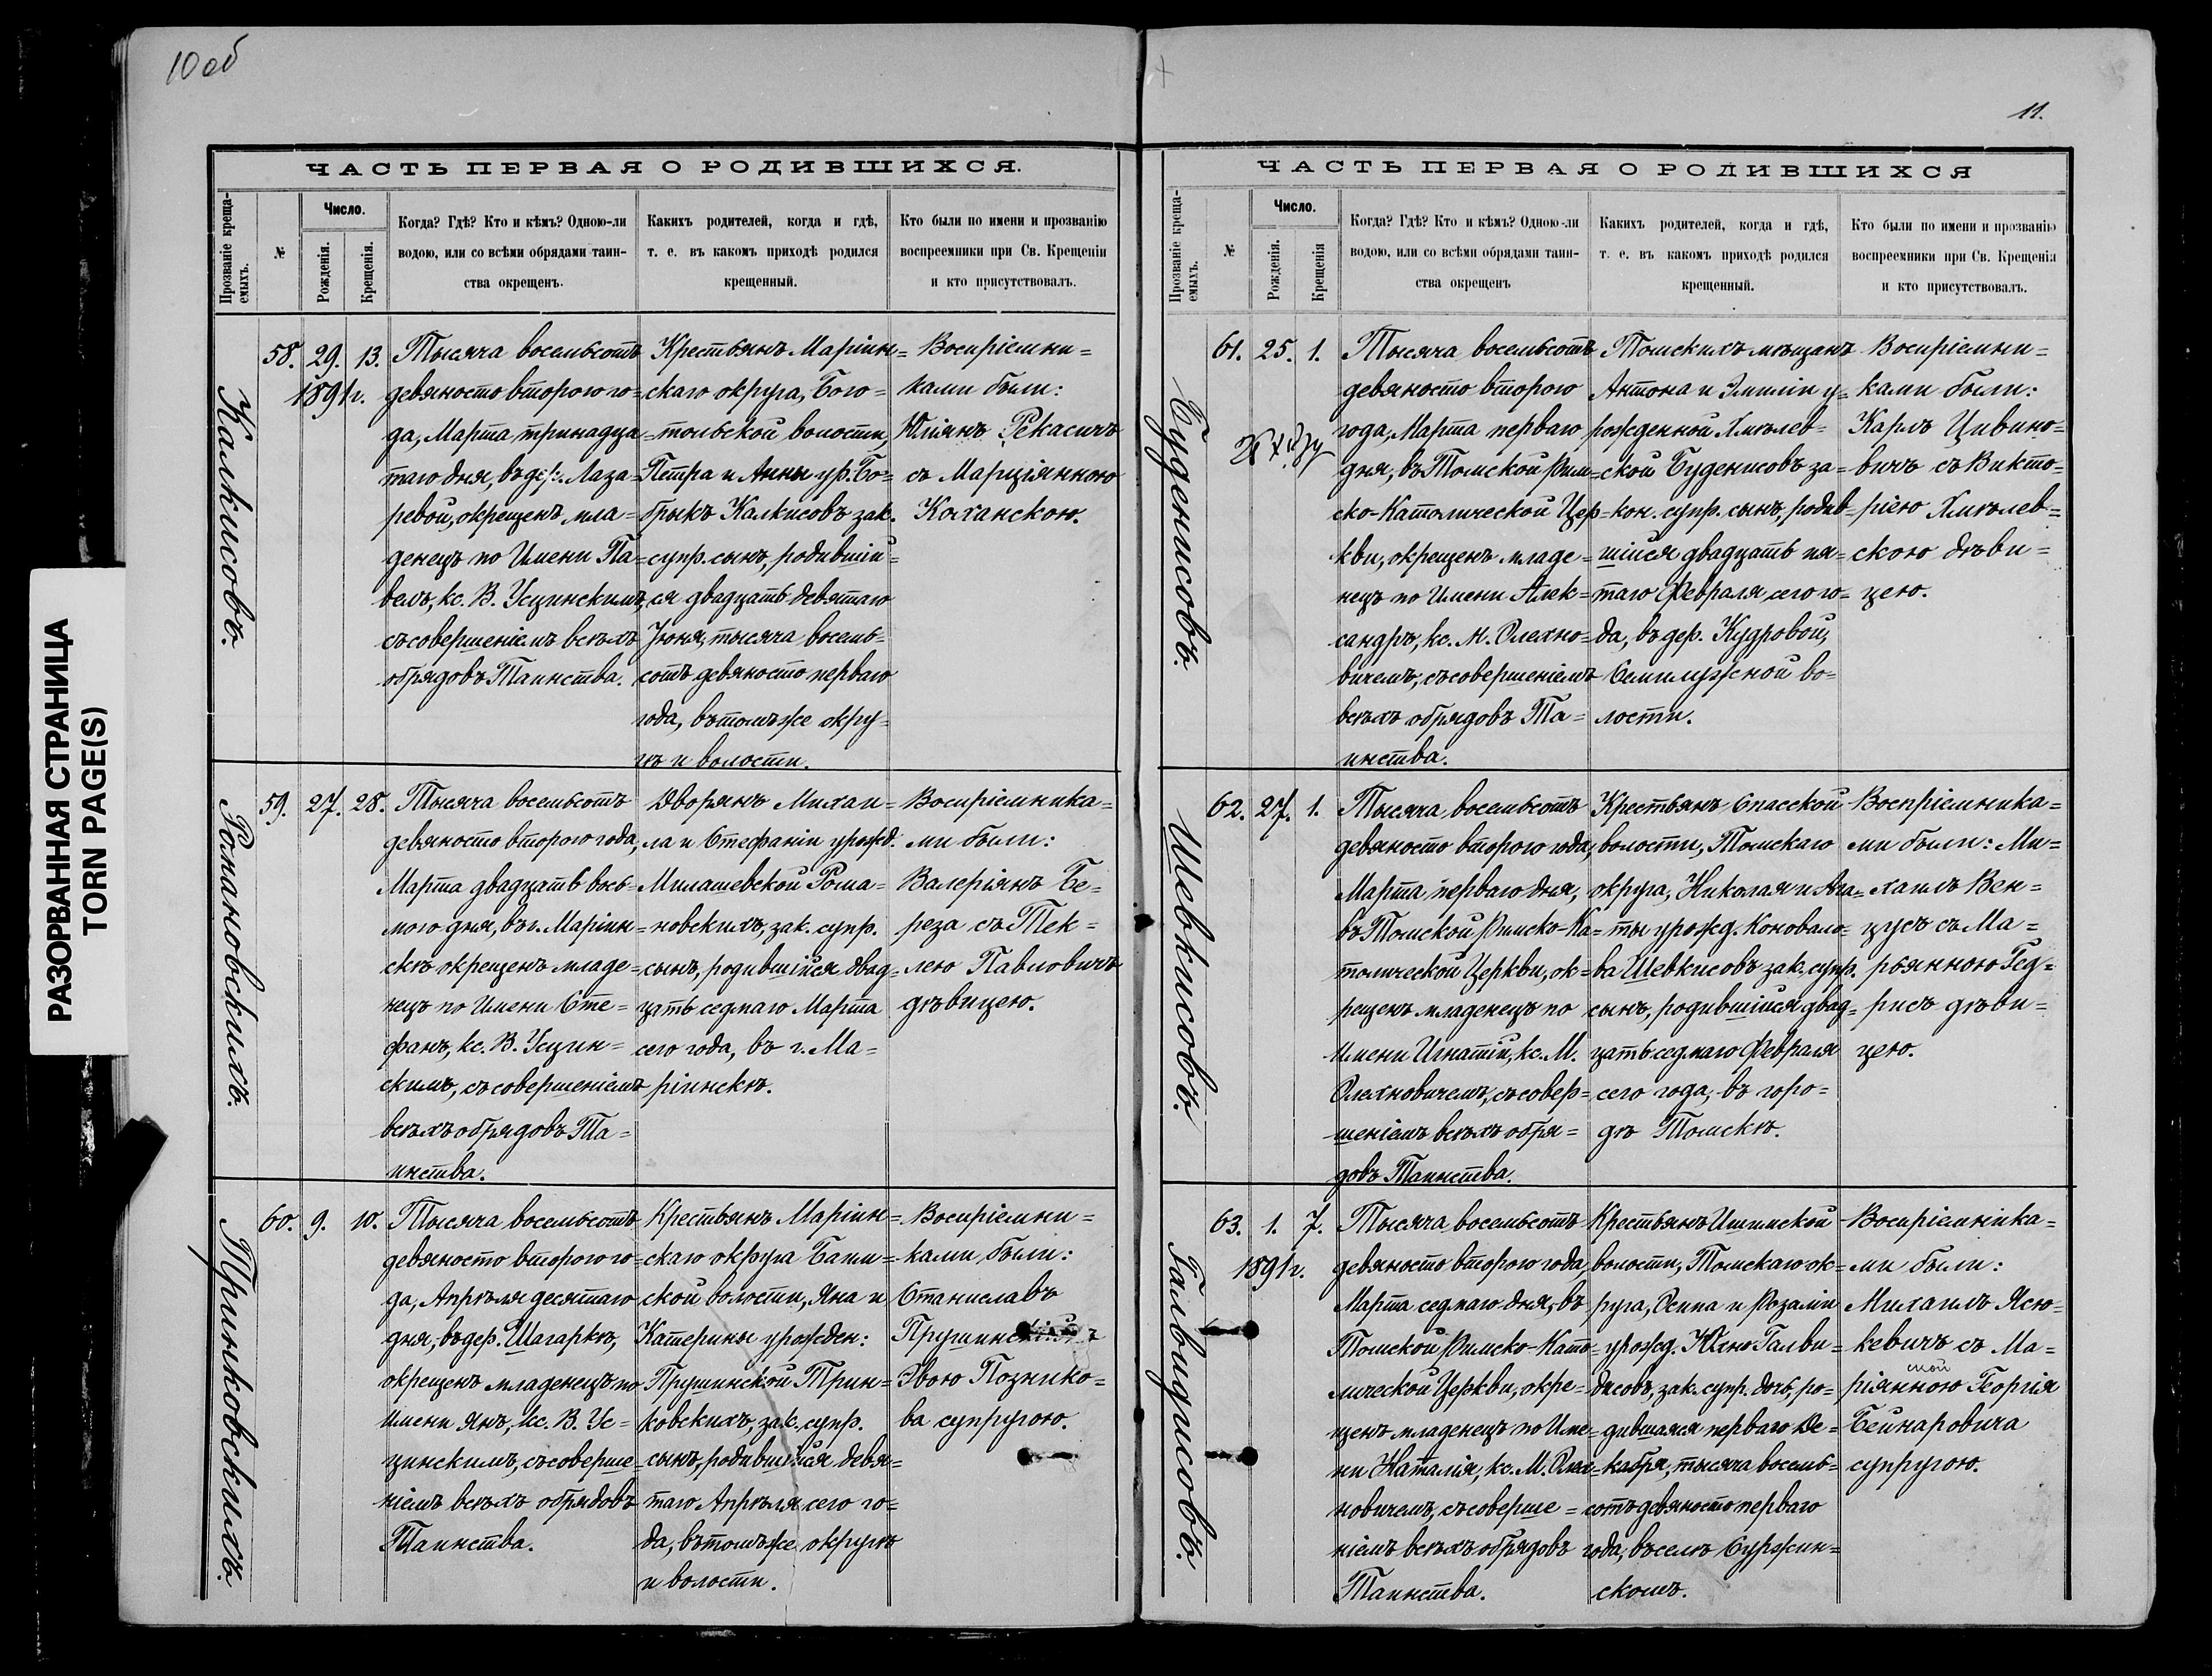 10 об
11.
РАЗОРВАННАЯ СТРАНИЦА
TORN PAGE(S)
ЧАСТЬ ПЕРВАЯ О РОДИВШИХСЯ.
Прозваніе креща-
емыхъ.
№
Число.
Рожденія.
Крещенія.
Когда? Гдѣ? Кто и кѣмъ? Одною-ли
водою, или со всѣми обрядами таин-
ства окрещенъ.
Какихъ родителей, когда и гдѣ,
т. е. въ какомъ приходѣ родился
крещенный.
Кто были по имени и прозванію
воспреемники при Св. Крещеніи
и кто присутствовалъ.
Калкисовъ.
58. 29. 13.
1891г.
Тысяча восемьсотъ
девяносто второго го-
да, Марта тринадца-
таго дня, въ дер. Лаза-
ревой, окрещенъ мла-
денецъ по Имени Па-
велъ, кс. В. Усцинскимъ,
съ совершеніемъ всѣхъ
обрядовъ Таинства.
Крестьянъ Маріин-
скаго округа, Бого-
тольской волости,
Петра и Анны ур. Бо-
брыкъ Калкисовъ зак.
супр. сынъ, родившій-
ся двадцать девятаго
Іюня, тысяча восемь-
сотъ девяносто перваго
года, въ томъ же окру-
гѣ и волости.
Воспріемни-
ками были:
Юліянъ Рекасичъ
съ Марціянною
Коханскою.
Романовскихъ.
59. 27. 28.
Тысяча восемьсотъ
девяносто второго года,
Марта двадцать вось-
мого дня, въ г. Маріин-
скѣ окрещенъ младе-
нецъ по Имени Сте-
фанъ, кс. В. Усцин-
скимъ, съ совершеніемъ
всѣхъ обрядовъ Та-
инства.
Дворянъ Михаи-
ла и Стефаніи урожд.
Милашевской Рома-
новскихъ, зак. супр.
сынъ, родившійся двад-
цать седмаго Марта
сего года, въ г. Ма-
ріинскѣ.
Воспріемника-
ми были:
Валеріянъ Бе-
реза съ Тек-
лею Павловичъ
дѣвицею.
Тринковскихъ.
60. 9. 10.
Тысяча восемьсотъ
девяносто второго го-
да, Апрѣля десятаго
дня, въ дер. Шагаркѣ,
окрещенъ младенецъ по
имени Янъ, кс. В. Ус-
цинскимъ, съ соверше-
ніемъ всѣхъ обрядовъ
Таинства.
Крестьянъ Маріин-
скаго округа Баим-
ской волости, Яна и
Катерины урожден:
Прушинской Трин-
ковскихъ, зак. супр.
сынъ, родившійся девя-
таго Апрѣля сего го-
да, въ томъ же округѣ
и волости.
Воспріемни-
ками были:
Станиславъ
Эвою Познико-
ва супругою.
ЧАСТЬ ПЕРВАЯ О РОДИВШИХСЯ
Прозваніе креща-
емыхъ.
№
Число.
Рожденія.
Крещенія
Когда? Гдѣ? Кто и кѣмъ? Одною-ли
водою, или со всѣми обрядами таин-
ства окрещенъ
Какихъ родителей, когда и гдѣ,
т. е. въ какомъ приходѣ родился
крещенный.
Кто были по имени и прозванію
воспреемники при Св. Крещенія
и кто присутствовалъ.
Буденисовъ.
61. 25. 1.
Тысяча восемьсотъ
девяносто второго
года, Марта перваго
дня, въ Томской Рим-
ско-Католической Цер-
кви, окрещенъ младе-
нецъ по Имени Алек-
сандръ, кс. М. Олехно-
вичемъ, съ совершеніемъ
всѣхъ обрядовъ Та-
инства.
Томскихъ мѣщанъ
Антона и Эмиліи у-
рожденной Хмѣлев-
ской Буденисовъ за-
кон. супр. сынъ, родив-
шійся двадцать пя-
таго Февраля, сего го-
да, въ дер. Кудровой,
Семилужной во-
лости.
Воспріемни-
ками были:
Карлъ Цивино-
вичъ съ Викто-
ріею Хмѣлев-
скою дѣви-
цею.
Шевкисовъ.
62. 27. 1.
Тысяча восемьсотъ
девяносто второго года,
Марта перваго дня,
въ Томской Римско-Ка-
толической Церкви, ок-
рещенъ младенецъ по
имени Игнатій, кс. М.
Олехновичемъ, съ совер-
шеніемъ всѣхъ обря-
довъ Таинства.
Крестьянъ Спасской
волости, Томскаго
округа, Николая и Ага-
ты урожд. Коновало-
ва Шевкисовъ зак. супр.
сынъ, родившійся двад-
цать седмаго Февраля
сего года, въ горо-
дѣ Томскѣ.
Воспріемника-
ми были: Ми-
хаилъ Вен-
цусъ съ Ма-
рьянною Гед-
рисъ дѣви-
цею.
Гальвидисовъ.
63. 1. 7.
1891г.
Тысяча восемьсотъ
девяносто второго года,
Марта седмаго дня, въ
Томской Римско-Като-
лической Церкви, окре-
щенъ младенецъ по Име-
ни Наталія, кс. М. Олех-
новичемъ, съ соверше-
ніемъ всѣхъ обрядовъ
Таинства.
Крестьянъ Ишимской
волости, Томскаго ок-
руга, Осипа и Розаліи
урожд. Юхно Галви-
дисовъ, зак. супр. дочь, ро-
дившаяся перваго Де-
кабря, тысяча восемь-
сотъ девяносто перваго
года, въ селѣ Суржин-
скомъ.
Воспріемника-
ми были:
Михаилъ Ясю-
кевичъ съ Ма-
ріянною Георгія
Бейнаровича
супругою.